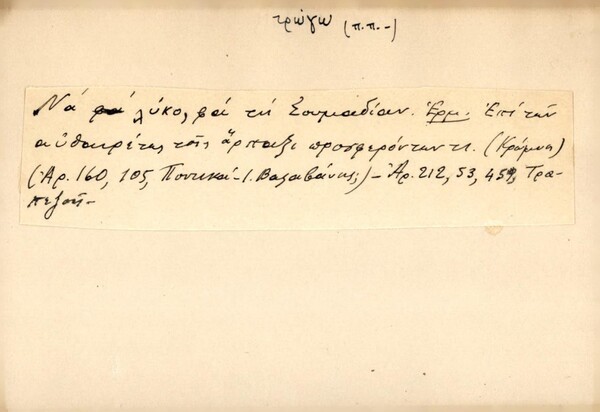 τρώγω (π.π.-)
Νά λύκο, φά τή Σουμαδίαν. Ἑρμ. Ἐπί τῶν
αὐθαιρέτως τοῖς ἅρπαξι προσφερόντων τι. (Κρώμνη)
(Ἀρ. 160, 105, Ποντικά - Ι. Βαζαβάνης;) - Ἀρ. 212, 53, 459, Τρα-
πεζοῦς -